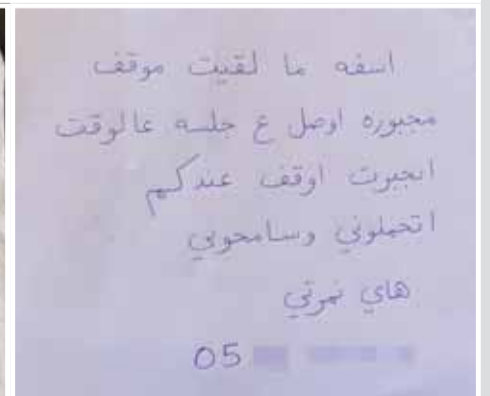 اسفه ما لقيت موقف
مجبوره اوصل ع جلسه عالوقت
انجبرت اوقف عندكم
اتحملوني وسامحوني
هاي نمرتي
05